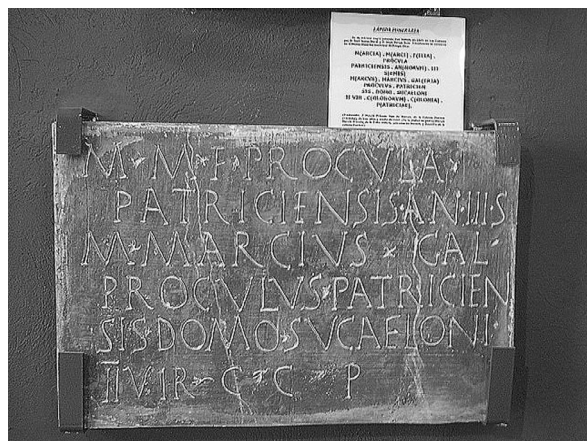 LÁPIDA FUNERARIA
M(ARCIA) . M(ARCI) . F(ILIA) .
PROCULA
PATRICIENSIS . AN(NORUM) . III
S(EMIS)
M(ARCUS) . MARCIUS . GAL(ERIA)
PROCULUS . PATRICIEN
SIS . DOMO . SUCAELONI
II VIR . C(OLONORUM) . C(OLONIA) .
P(ATRICIAE).
M · M · F · PROCVLA ·
PATRICIENSIS · AN · III · S
M · MARCIVS · GAL ·
PROCVLVS · PATRICIEN
SIS DOMO · SVCAELONI
II VIR · C · C · P